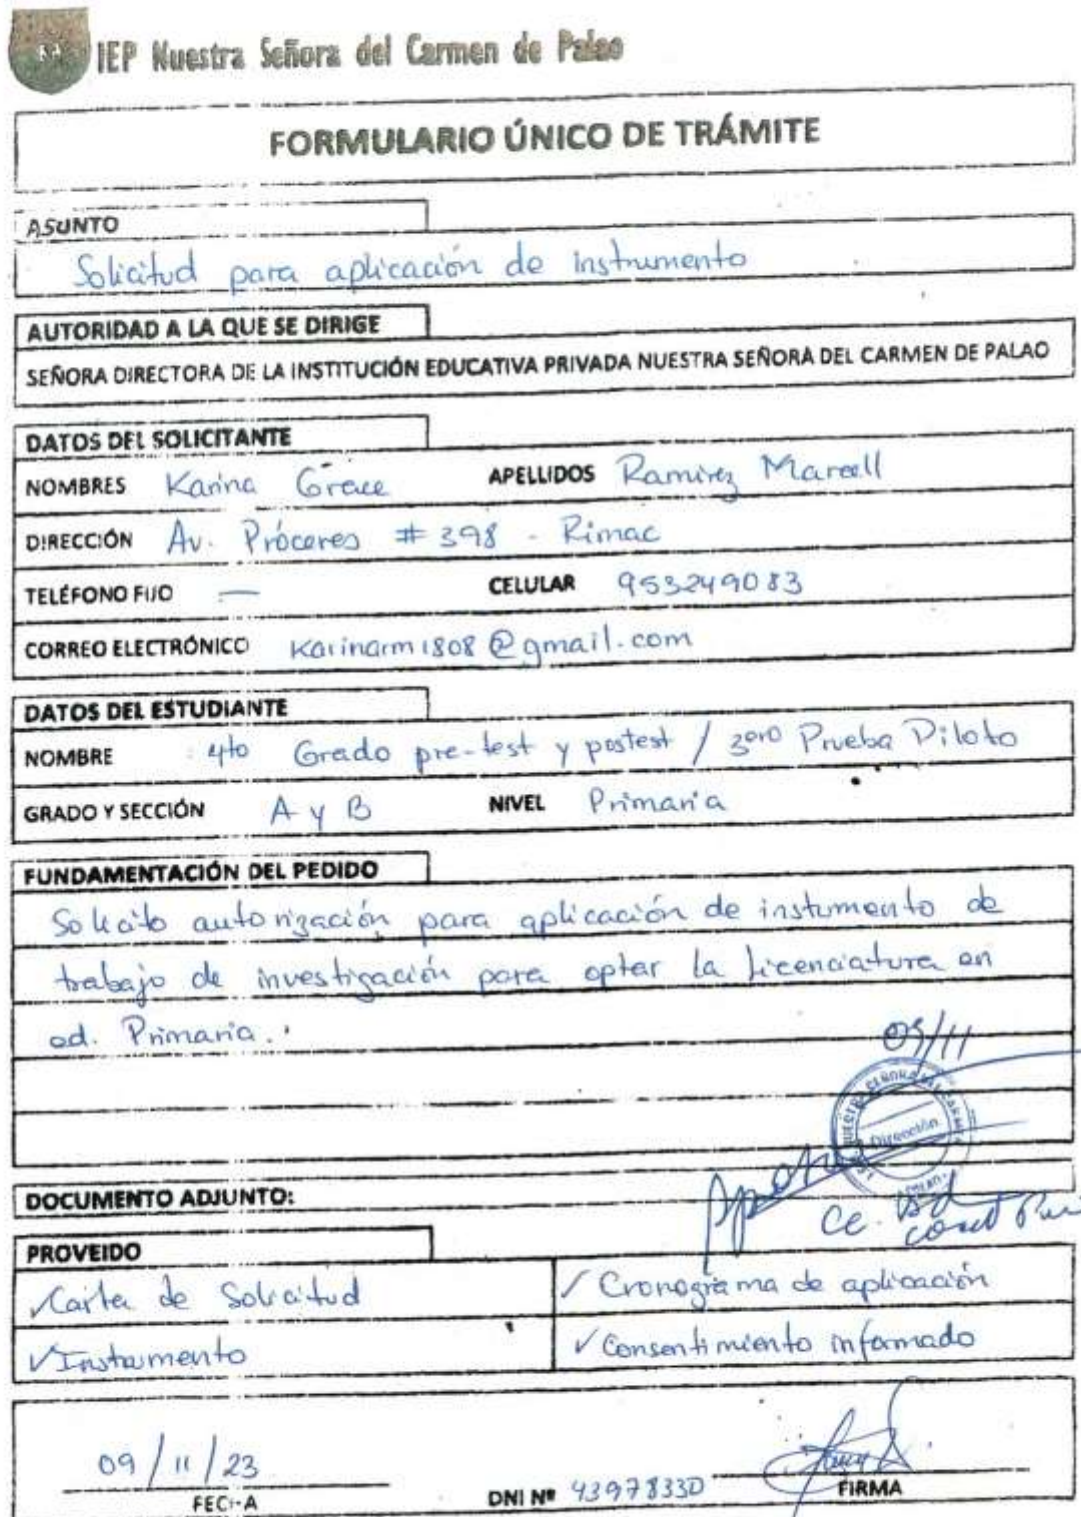 IEP Nuestra Señora del Carmen de Palao
FORMULARIO ÚNICO DE TRÁMITE
ASUNTO
Solicitud para aplicación de instrumento
AUTORIDAD A LA QUE SE DIRIGE
SEÑORA DIRECTORA DE LA INSTITUCIÓN EDUCATIVA PRIVADA NUESTRA SEÑORA DEL CARMEN DE PALAO
DATOS DEL SOLICITANTE
NOMBRES Karina Grace APELLIDOS Ramirez Marcell
DIRECCIÓN Av. Próceres # 398 - Rimac
TELÉFONO FIJO — CELULAR 953249083
CORREO ELECTRÓNICO Karinarm1808@gmail.com
DATOS DEL ESTUDIANTE
NOMBRE : 4to Grado pre-test y postest / 3ero Prueba Piloto
GRADO Y SECCIÓN A y B NIVEL Primaria
FUNDAMENTACIÓN DEL PEDIDO
Solicito autorización para aplicación de instumento de
trabajo de investigación para optar la Licenciatura en
ed. Primaria.
09/11
Dirección
DOCUMENTO ADJUNTO:
PROVEIDO
✓Carta de Solicitud
✓Cronograma de aplicación
✓Instrumento
✓Consentimiento informado
09/11/23
FECHA
DNI Nº 43978330
FIRMA